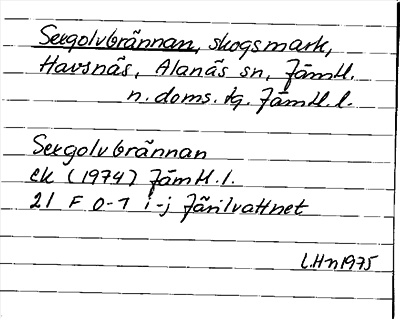 Sexgolvbrännan, skogsmark,
Havsnäs, Alanäs sn, Jämtl.
n. doms. tg. Jämtl. l.
Sexgolvbrännan
ek (1974) Jämtl. l.
21 F 0-1 i-j Järilvattnet
L.Hn 1975